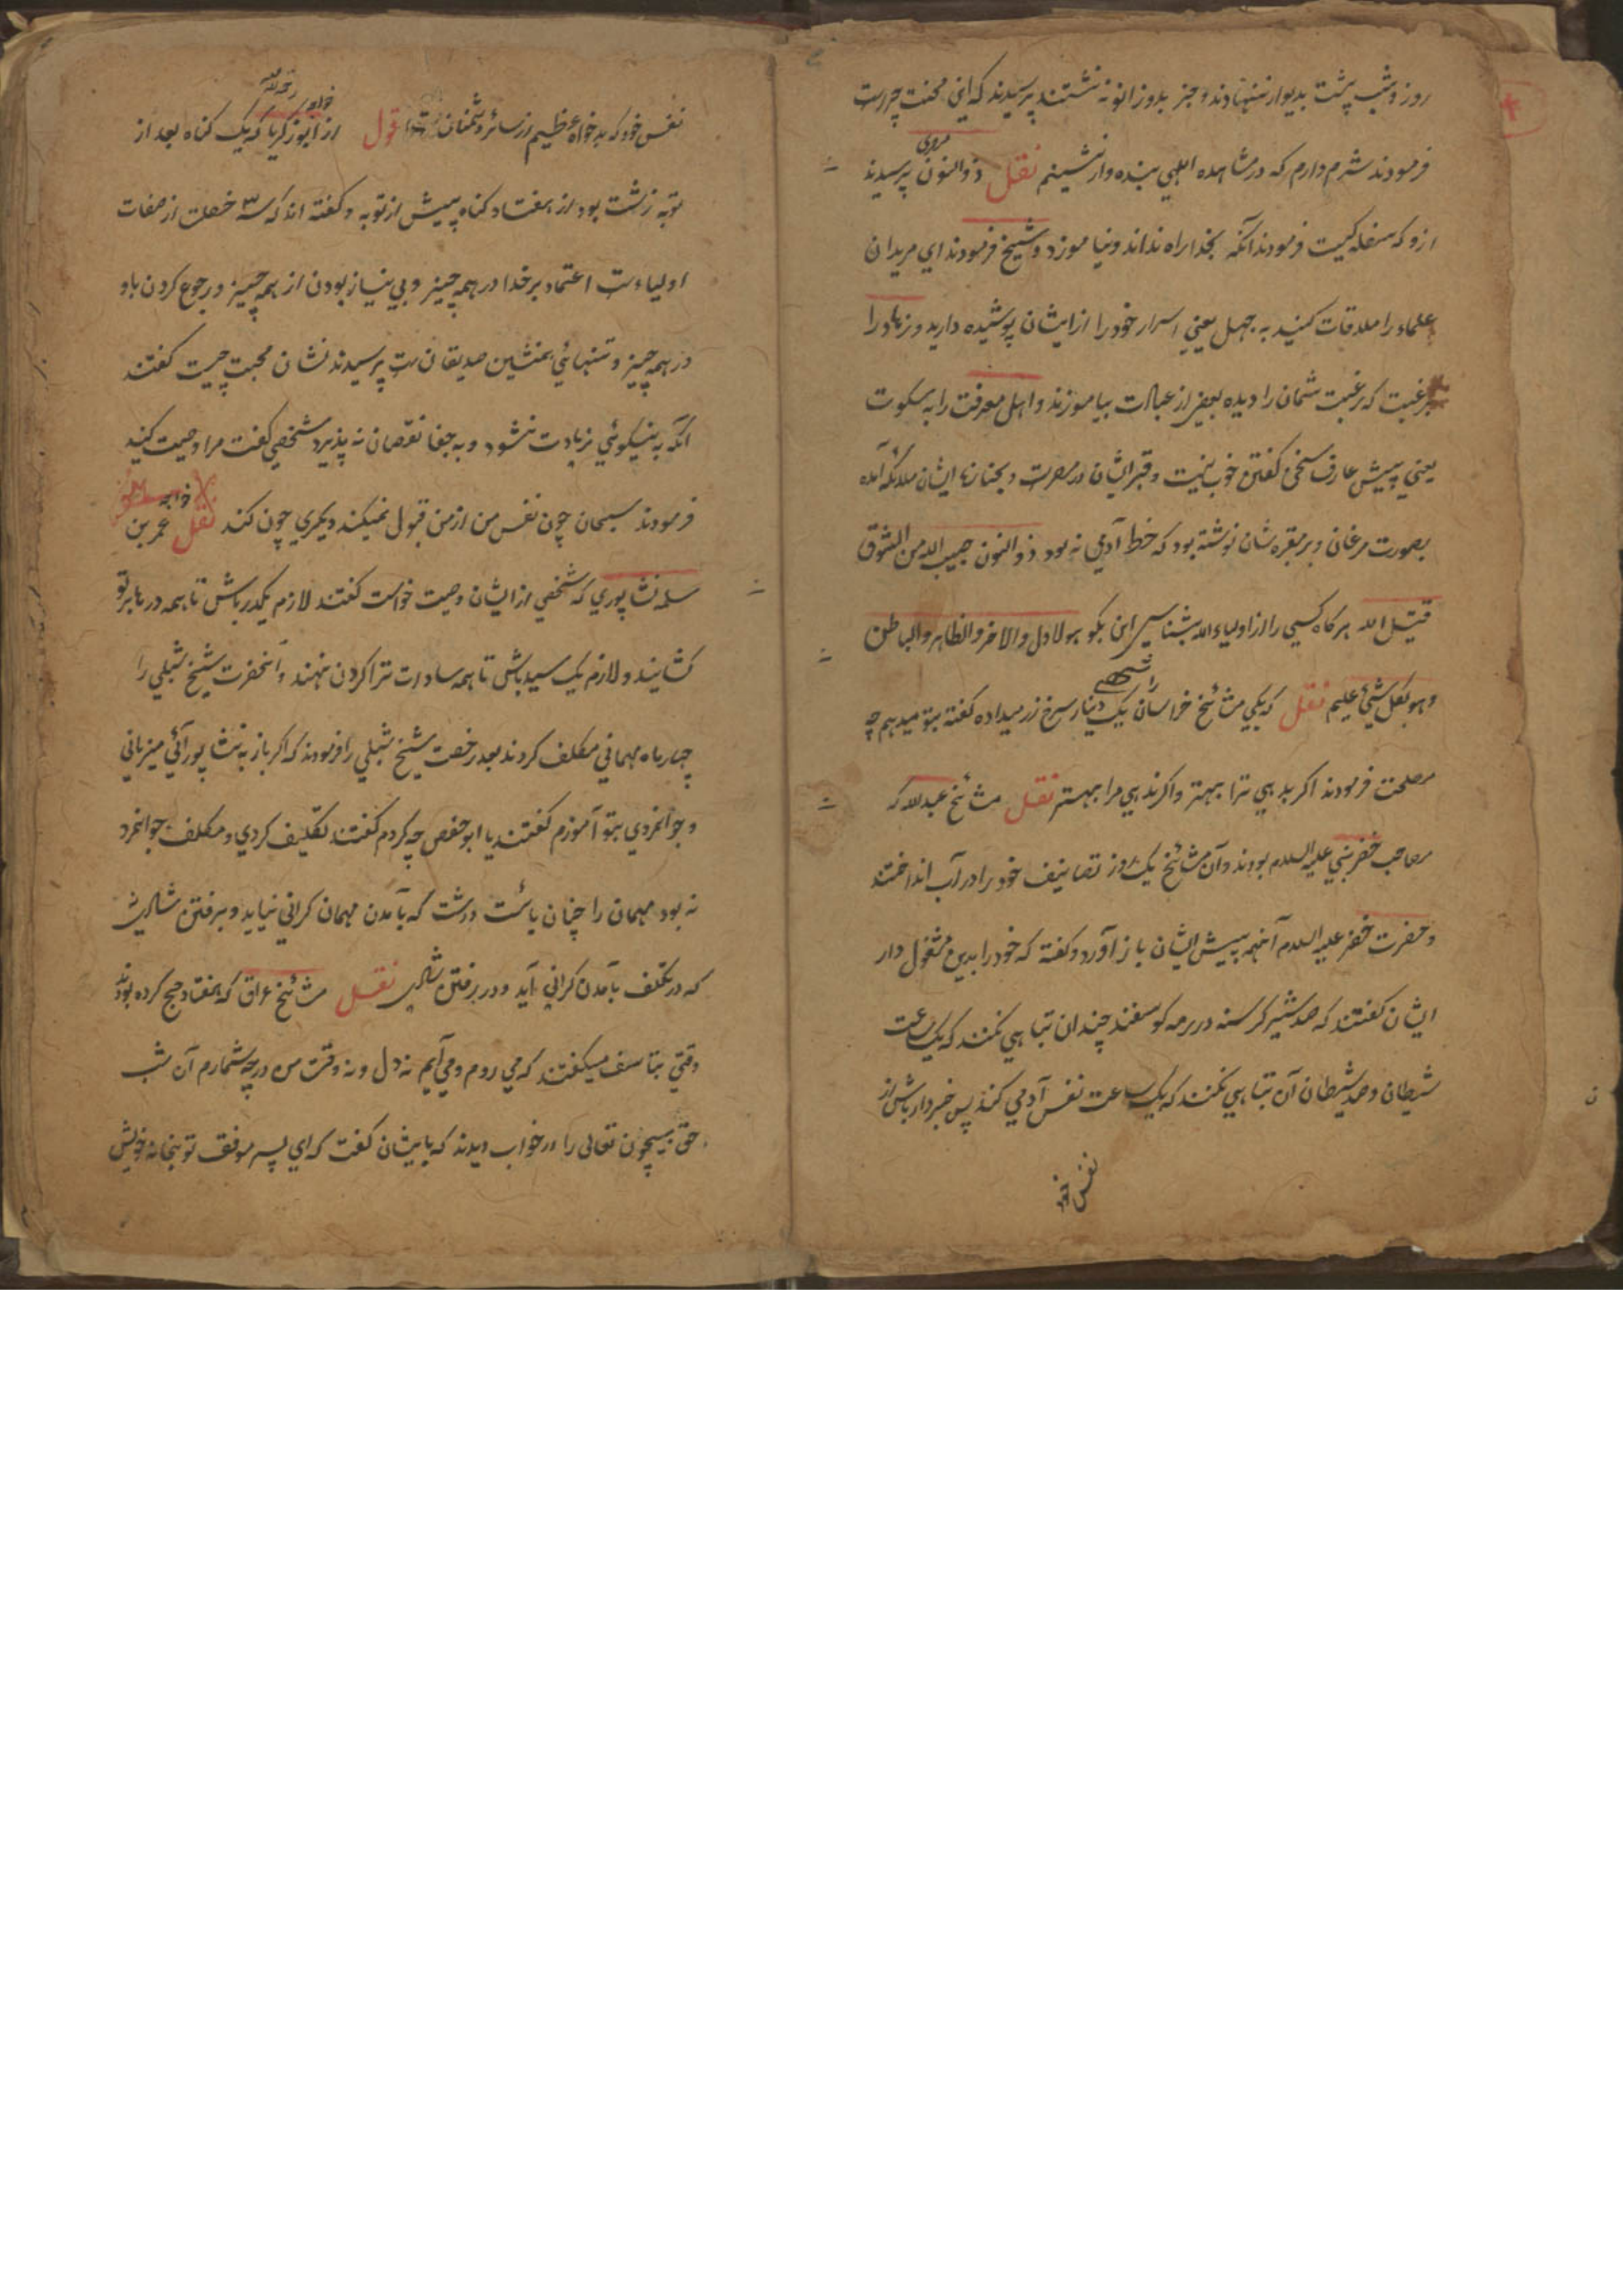 روز و شب پشت بدیوار ننهادند و جز بدو زانو نه نشستند پرسیدند که این محنت چراست
فرمودند شرم دارم که در مشاهده الهی بنده وار ننشینم نقل ذوالنون مصری پرسیدند
ازو که سفله کیست فرمودند آنکه بخدا راه نداند و نیاموزد و شیخ فرمودند ای مریدان
علماء را ملاقات کنید به جهل یعنی اسرار خود را از ایشان پوشیده دارید و زهاد را
برغبت که رغبت شمان را دیده بعضی از عبادات بیاموزند و اهل معرفت را به سکوت
یعنی پیش عارف سخن گفتن خوب نیست و قبر ایشان در مصرست و بجنازهٔ ایشان ملائکه آمده
بصورت مرغان و بر مقبره شان نوشته بود که خط آدمی نه بود ذوالنون حبیب الله من الشوق
قتیل الله هرگاه کسی را از اولیاءالله بشناسی این بگو هو الاول والاخر والظاهر والباطن
وهو بکل شیئ علیم نقل که یکی مشائخ خراسان را یک دینار سرخ زر میداده گفته بتو میدهم چه
مصلحت فرمودند اگر بدهی ترا بهتر و اگر ندهی مرا بهتر نقل مشائخ عبدالله که
صاحب خضر نبی علیه السلام بودند و آن مشائخ یک روز تصانیف خود را در آب انداختند
و حضرت خضر علیه السلام آنهمه پیش ایشان باز آورد و گفته که خود را بدین مشغول دار
ایشان گفتند که صد شیر گرسنه در رمه گوسفند چندان تباهی نکنند که یک ساعت
شیطان و صد شیطان آن تباهی نکنند که یک ساعت نفس آدمی کند پس خبردار باش از
نفس خود
نفس خود که بدخواه عظیم از سائر دشمنان است قول از خواجه ابوزکریا رحمه الله که یک گناه بعد از
توبه زشت بود از هفتاد گناه پیش از توبه و گفته اند که سه خصلت از صفات
اولیاءست اعتماد بر خدا در همه چیز و بی نیاز بودن از همه چیز و رجوع کردن باو
در همه چیز و تنهائی همنشین صدیقان ست پرسیدند نشان محبت چیست گفتند
آنکه به نیکوئی زیادت نشود و به جفا نقصان نه پذیرد شخصی گفت مرا وصیت کنید
فرمودند سبحان چون نفس من از من قبول نمیکند دیگری چون کند نقل خواجه عمر بن
سلمه نشاپوری که شخصی از ایشان وصیت خواست گفتند لازم یکدر باش تا همه درها بر تو
کشایند و لازم یک سید باش تا همه سادات ترا گردن نهند و آنحضرت شیخ شبلی را
چهار ماه مهمانی مکلف کردند بعد رخصت شیخ شبلی را فرمودند که اگر باز به نشاپور آئی میزبانی
و جوانمردی بتو آموزم گفتند یا ابوحفص چه کردم گفتند تکلیف کردی و مکلف جوانمرد
نه بود مهمان را چنان بائست داشت که بآمدن مهمان گرانی نیاید و برفتن شادی
که در تکلف بآمدن گرانی آید و در رفتن شادی نقل مشائخ عراق که هفتاد حج کرده بودند
وقتی بتاسف میگفتند که می روم و می آیم نه دل و نه وقت من در چه شمارم آن شب
حق بیچون تعالی را در خواب دیدند که بایشان گفت که ای پسر موفق تو بخانه خویش